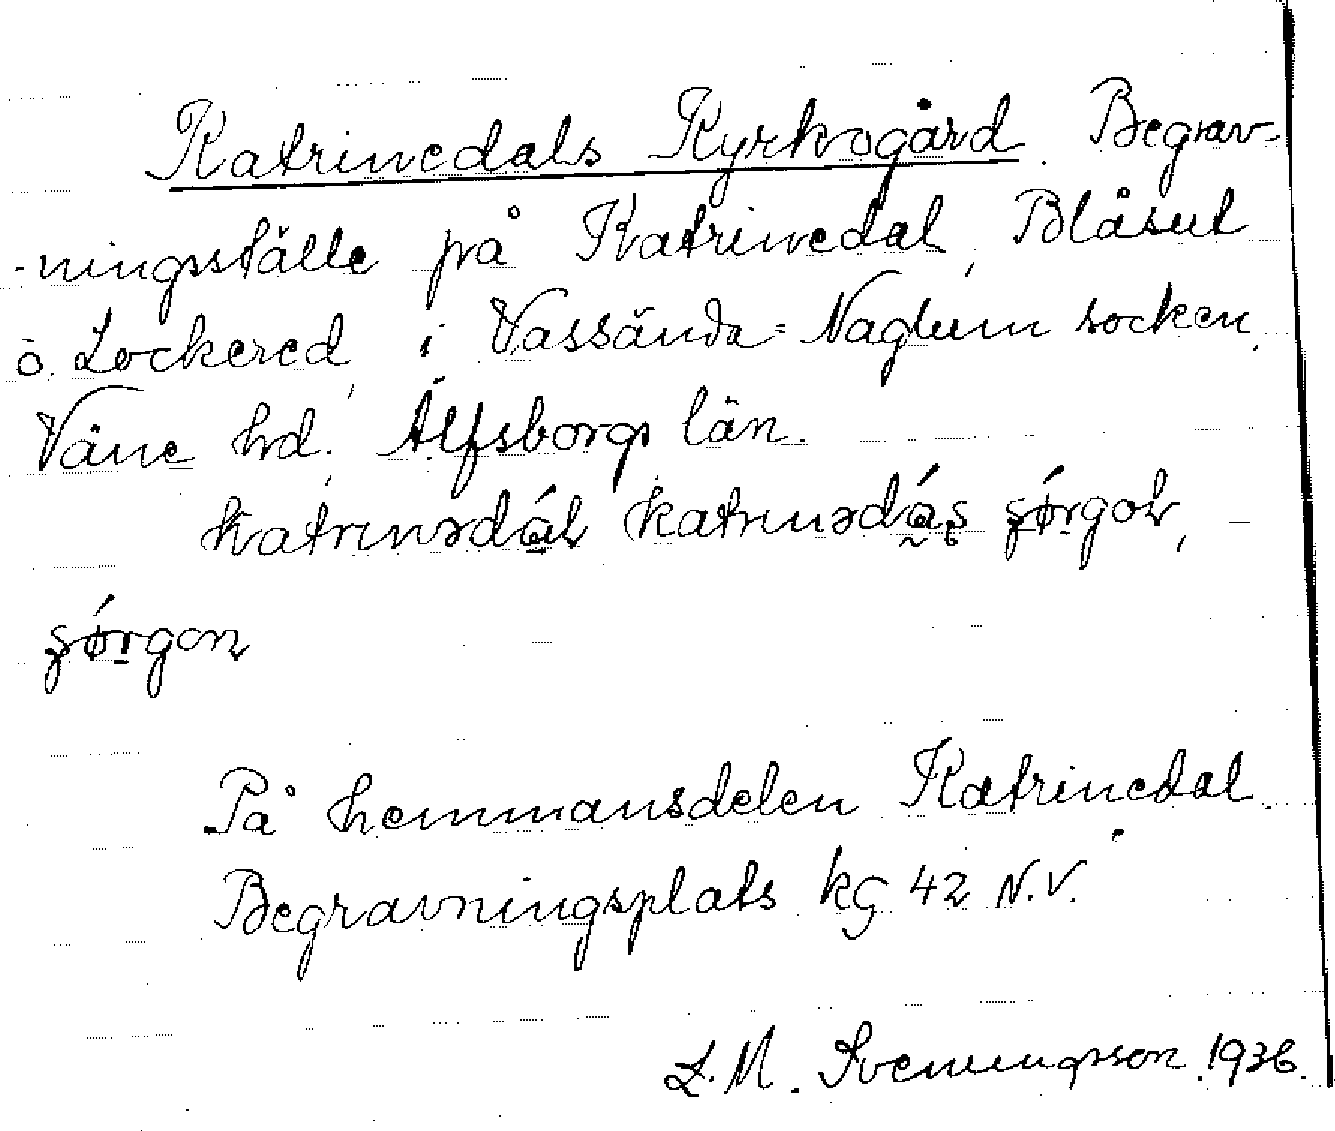 Katrinedals Kyrkogård. Begrav-
-ningsställe på Katrinedal, Blåsut
o. Lockered, i Vassända-Naglum socken,
Väne hd. Älfsborgs län.
katrinədál katrinədás
På hemmansdelen Katrinedal.
Begravningsplats kg 42 N.V.
L.M. Svenungsson. 1936.